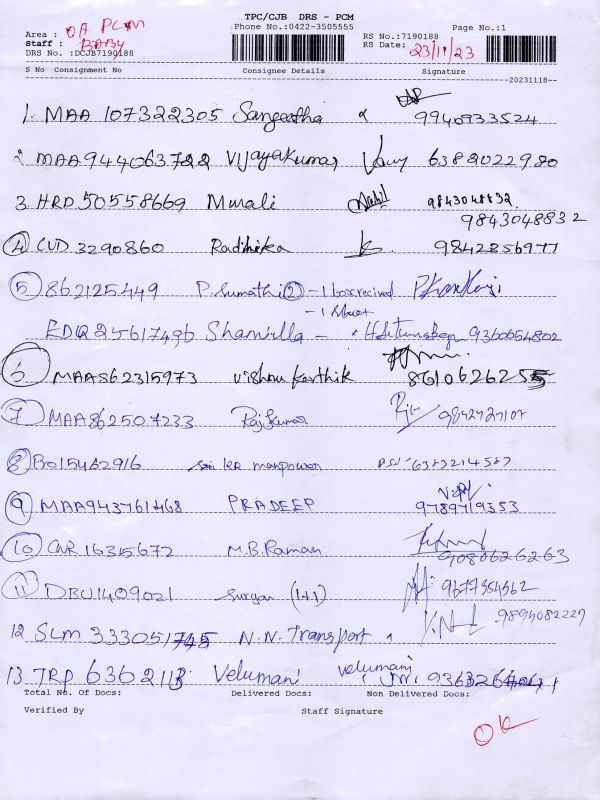 TPC/CJB DRS - PCM
Phone No.:0422-3505555
Page No.:1
Area : OA PCM
Staff : BABY
DRS No. :DCJB7190188
RS No.:7190188
RS Date: 23/11/23
S No Consignment No Consignee Details Signature
20231118
1. MAA 107322305 Sangeetha 9940933524
2. MAA944063722 Vijayakumar 6382022980
3. HRD 50558669 Murali 9843048832
9843048832
4. CUD 3290860 Radhika 9842256977
5. 862125449 P. Sumathi (2) - 1 box recived
- 1 
EDQ25617496 Shamilla 9360654802
6 MAA862315973 Vishnu Karthik 8610626255
7 MAA862507233 Rajkumar 9842727107
8 Sri KR manpower 6383214587
9 MAA943761468 PRADEEP 9789719353
10 CNR 16315672 M.B. Raman 9080626263
11 DBU1409021 Surya (1+1) 9677354362
12 SLM 333051745 N.N. Transport 9894082229
13 TRP 6362113 Velumani Velumani
Total No. Of Docs: Delivered Docs: Non Delivered Docs:
Verified By Staff Signature
OK